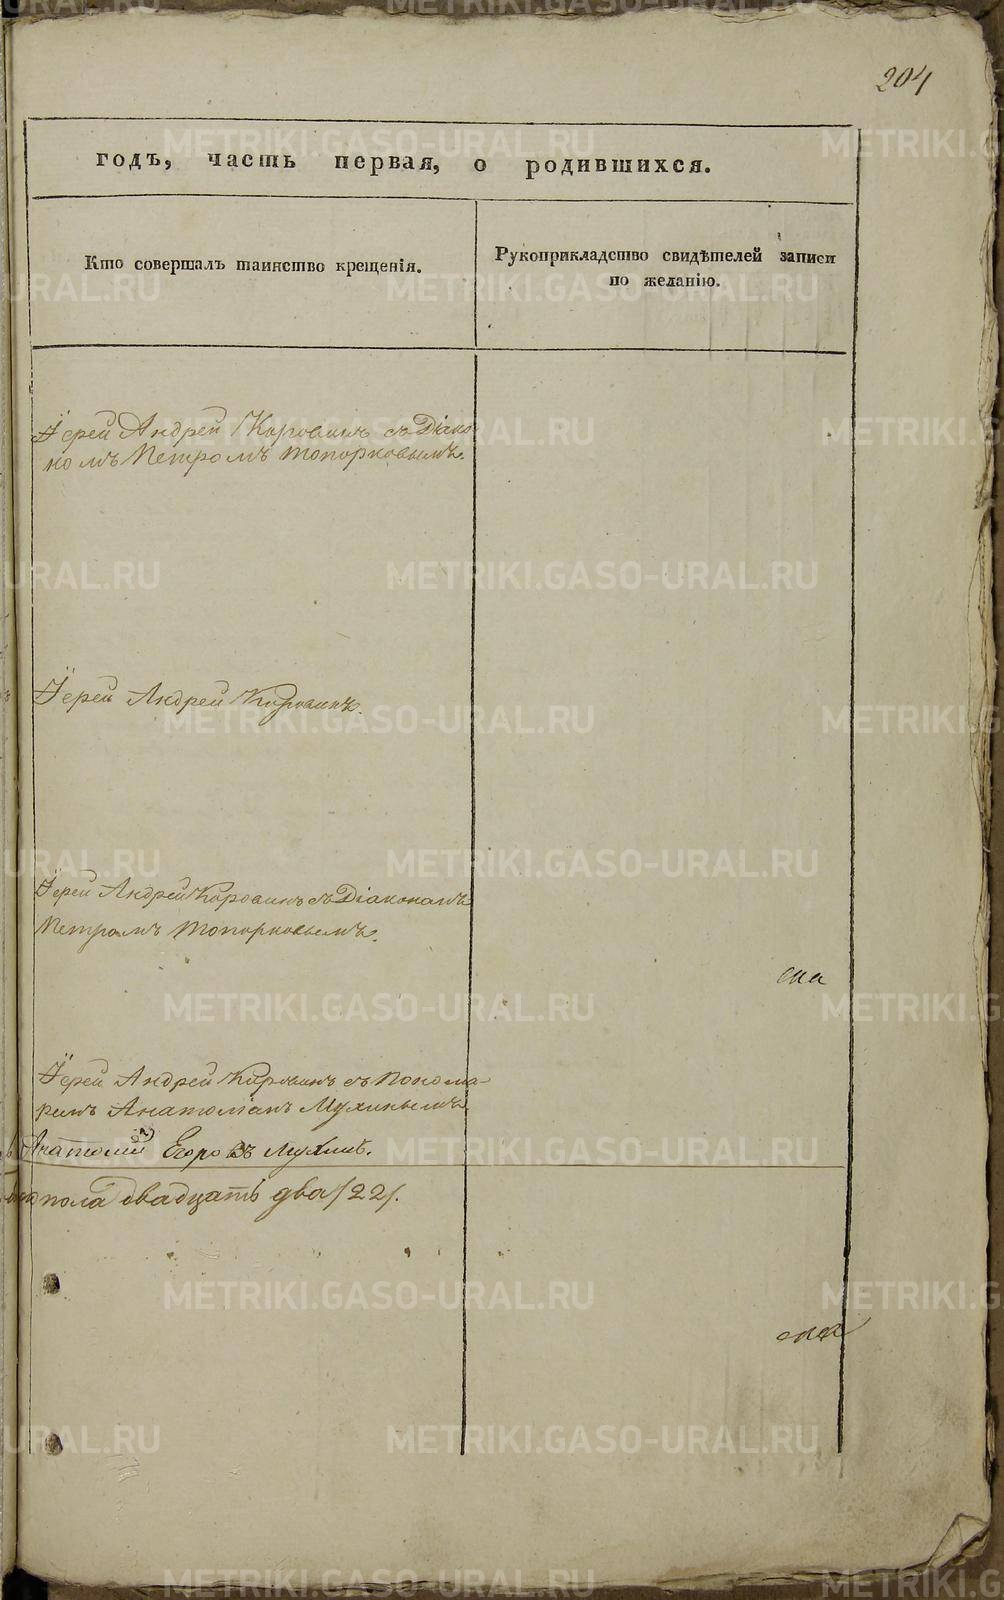 204
годъ, часть первая, о родившихся.
Кто совершалъ таинство крещенія.
Рукоприкладство свидѣтелей записи
по желанію.
Іерей Андрей Коровинъ съ Діако
номъ Петромъ Топорковымъ.
Іерей Андрей Коровинъ.
Іерей Андрей Коровинъ съ Діакономъ
Петромъ Топорковымъ.
Іерей Андрей Коровинъ съ Поном-
Анатоліемъ Мухинымъ
Анатолий Егоровъ Мухинъ.
пола двадцать два /22/.
METRIKI.GASO-URAL.RU